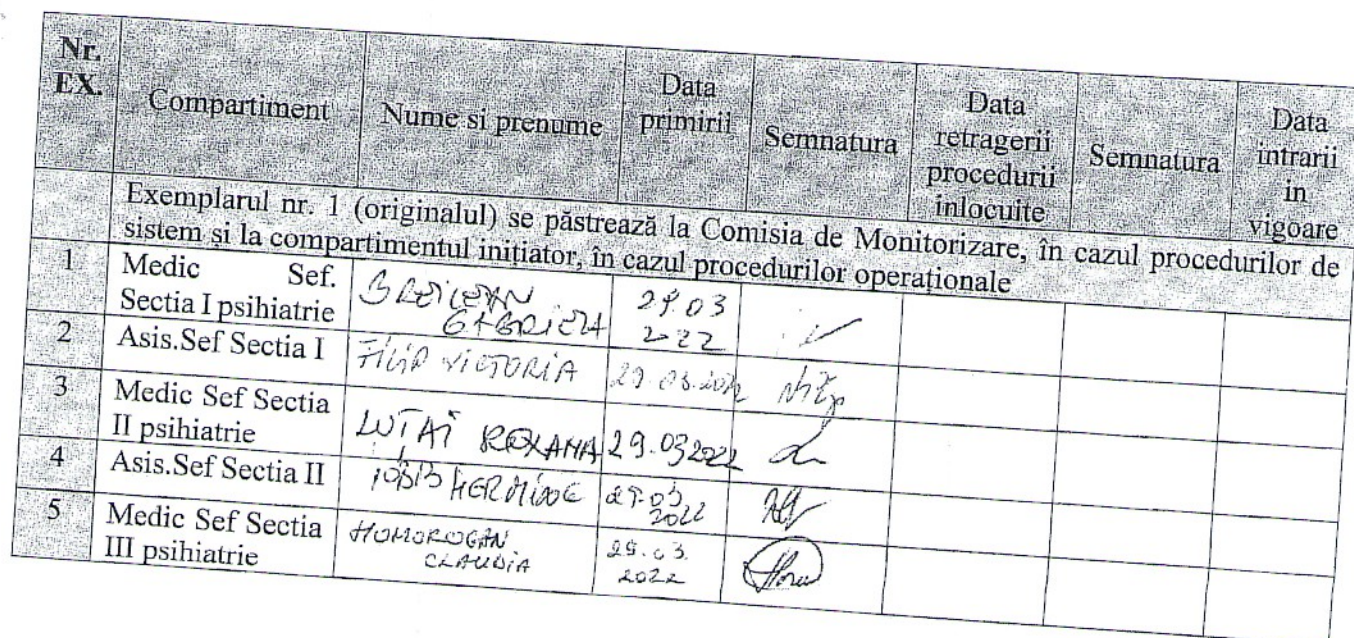 Nr. EX.
Compartiment
Nume si prenume
Data primirii
Semnatura
Data retragerii procedurii inlocuite
Semnatura
Data intrarii in vigoare
Exemplarul nr. 1 (originalul) se păstrează la Comisia de Monitorizare, în cazul procedurilor de
sistem și la compartimentul inițiator, în cazul procedurilor operaționale
1 Medic Sef. Sectia I psihiatrie 29.03 2022
2 Asis.Sef Sectia I FILIP VICTORIA 29.03.2022
3 Medic Sef Sectia II psihiatrie LUȚAI ROXANA 29.03.2022
4 Asis.Sef Sectia II 29.03.2022
5 Medic Sef Sectia III psihiatrie HOMOROGAN CLAUDIA 29.03.2022